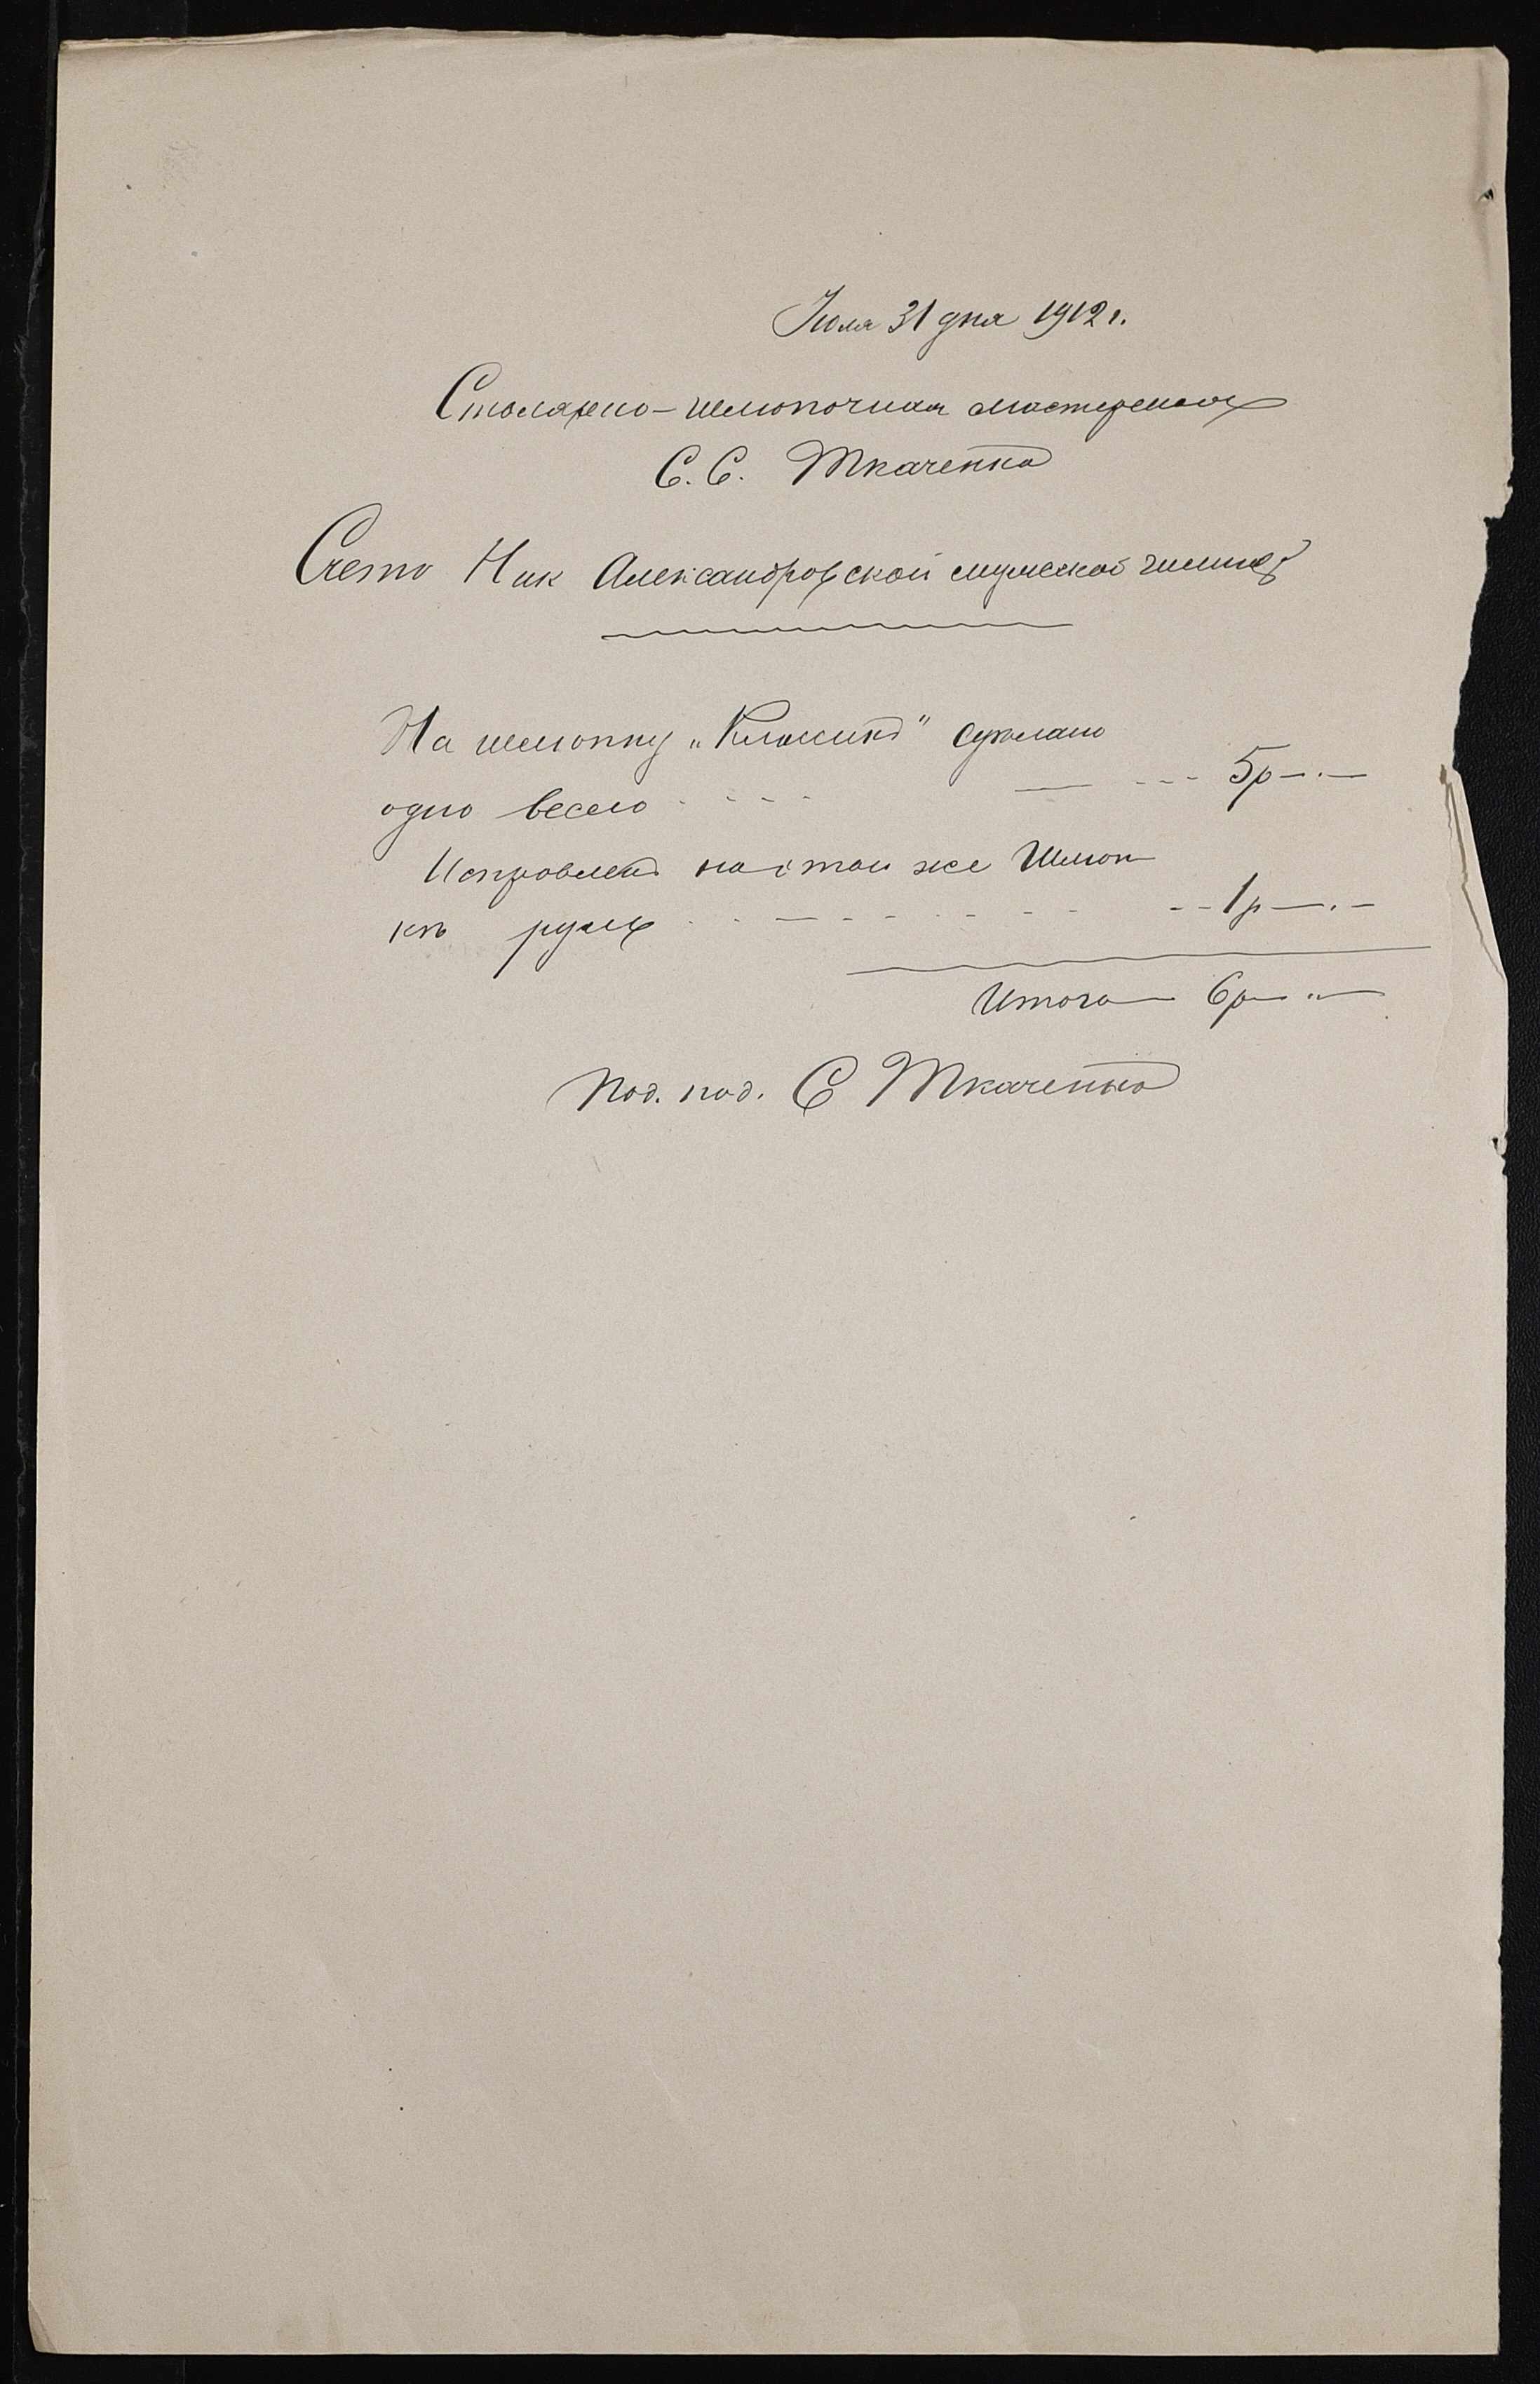 Июля 31 дня 1912 г.
Столярно-шлюпочная мастерская
С. С. Ткаченко
Счетъ Ник Александровской мужской гимназ
На шлюпку „Классикъ" сделано
одно весло - - - - — - - - 5р—.—
Исправленъ на той же Шлюп
кѣ руль - - — - - - - - - - 1р—.—
Итого — 6р— „—
Под. под. С Ткаченко